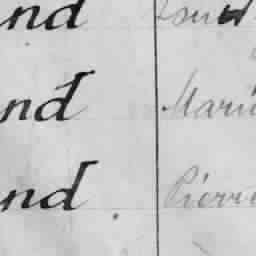 nd
nd Mari
nd. Pierre